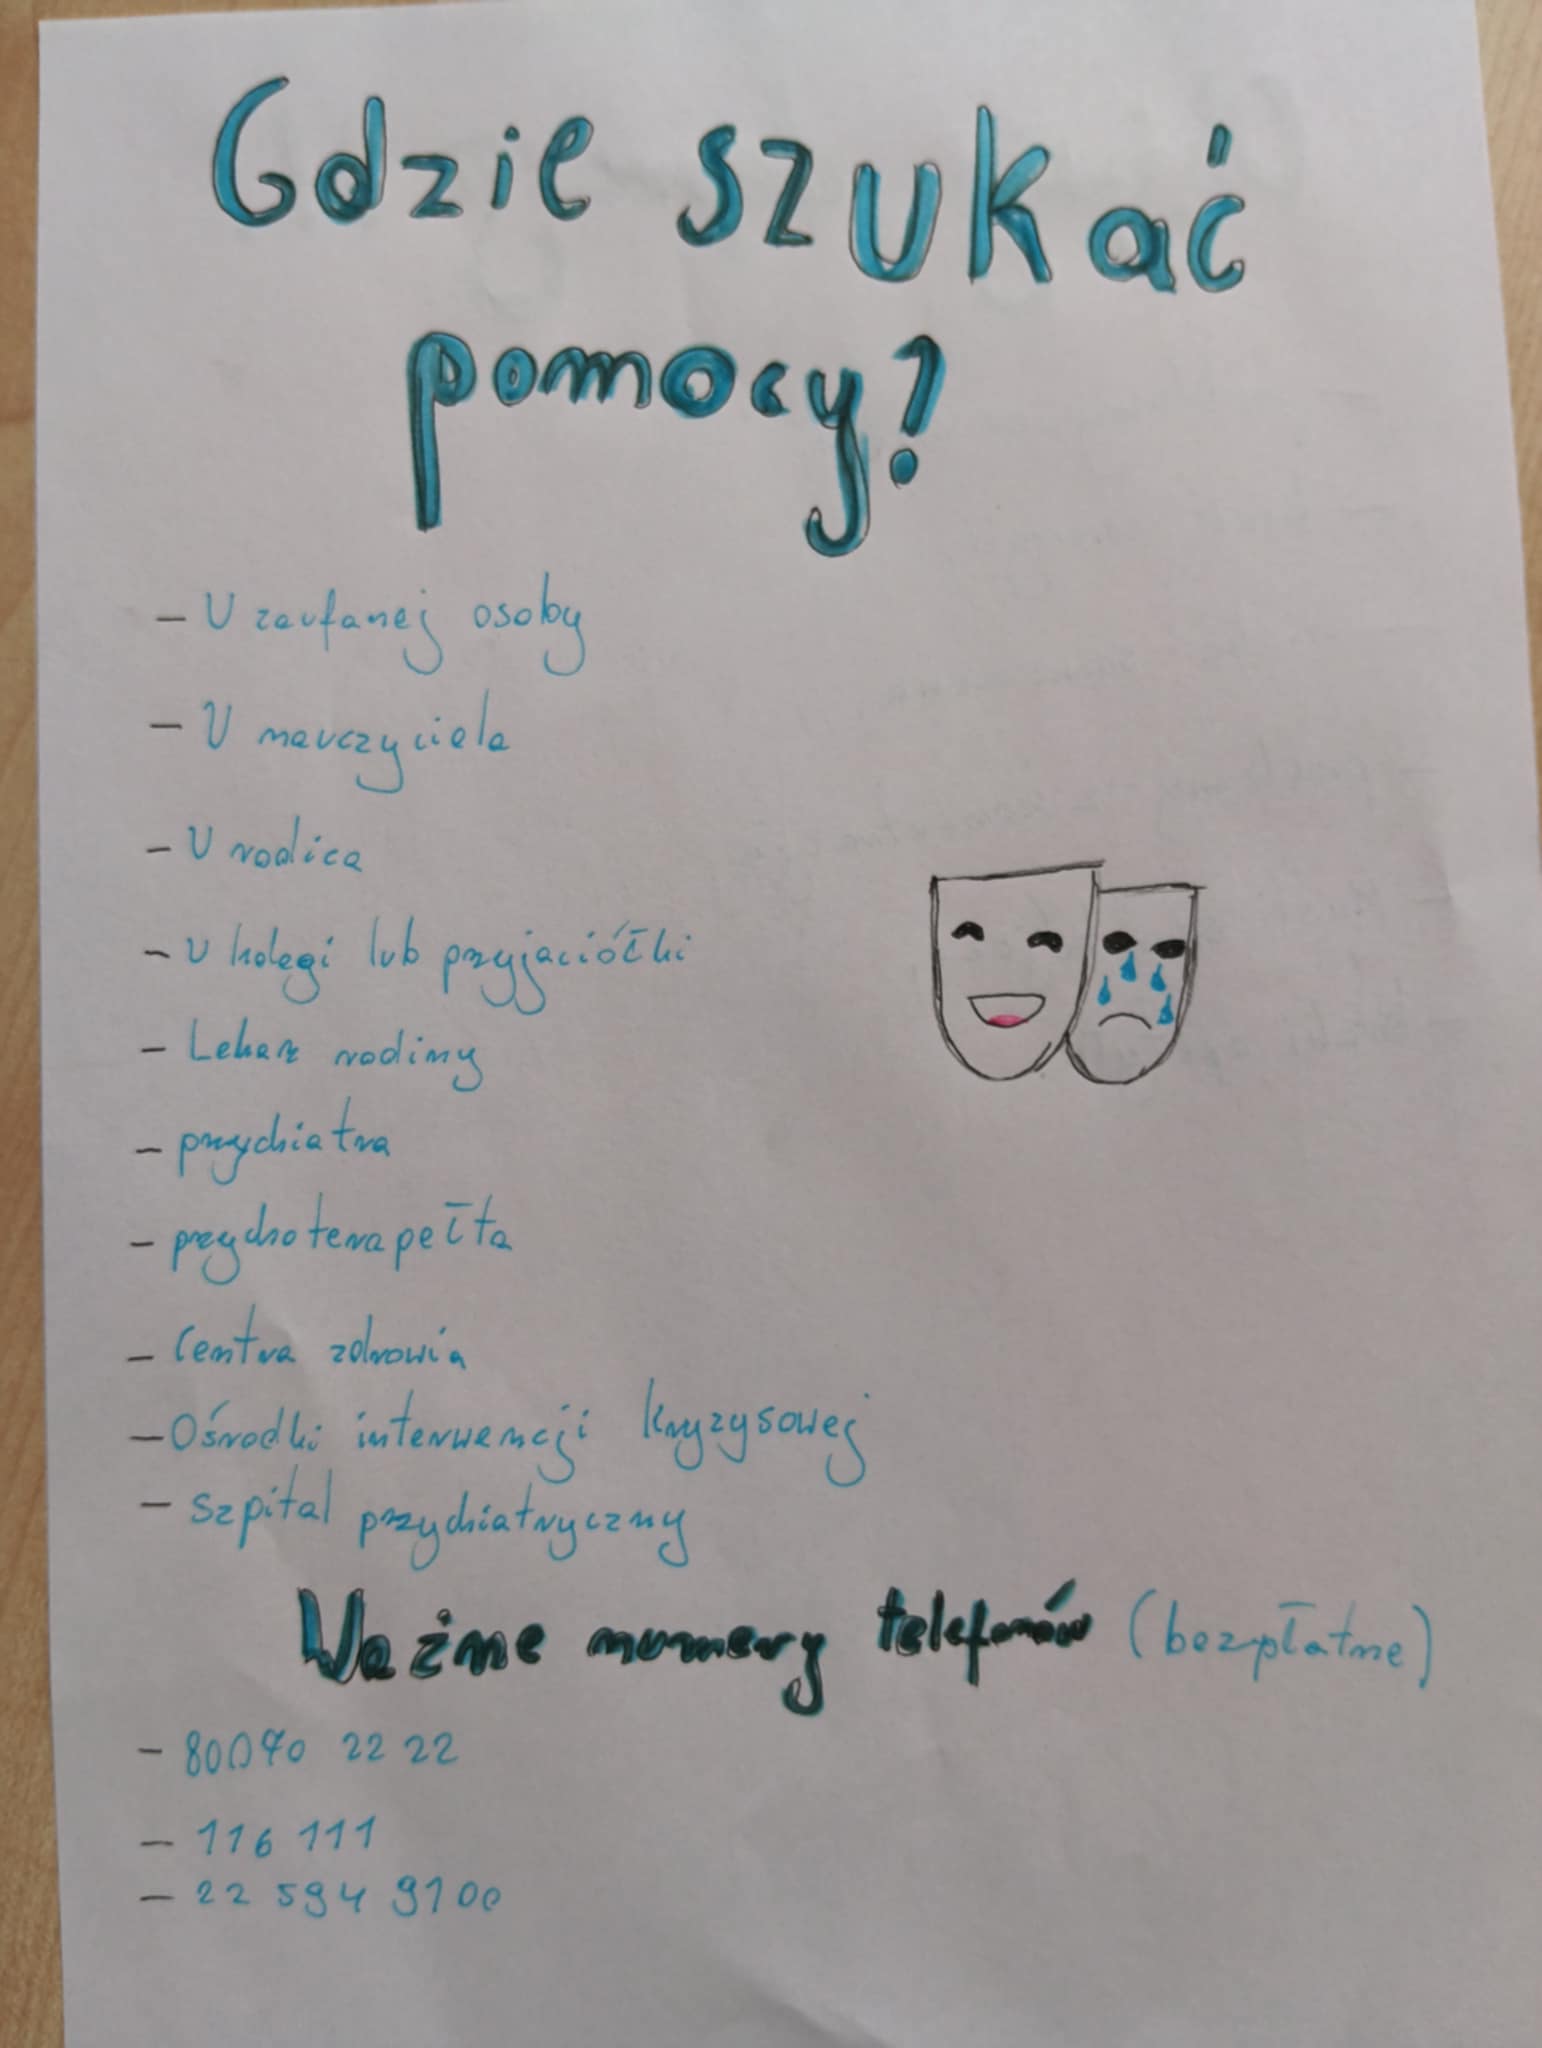 Gdzie szukać
pomocy?
- U zaufanej osoby
- U nauczyciela
- U rodica
- U kolegi lub przyjaciółki
- Lekarz rodiny
- przychiatra
- przychoterapełta
- Centra zdrowia
- Ośrodki interwencji kryzysowej
- Szpital przychiatryczny
Ważne numery telefonów (bezpłatne)
- 80070 22 22
- 116 111
- 22 594 9100